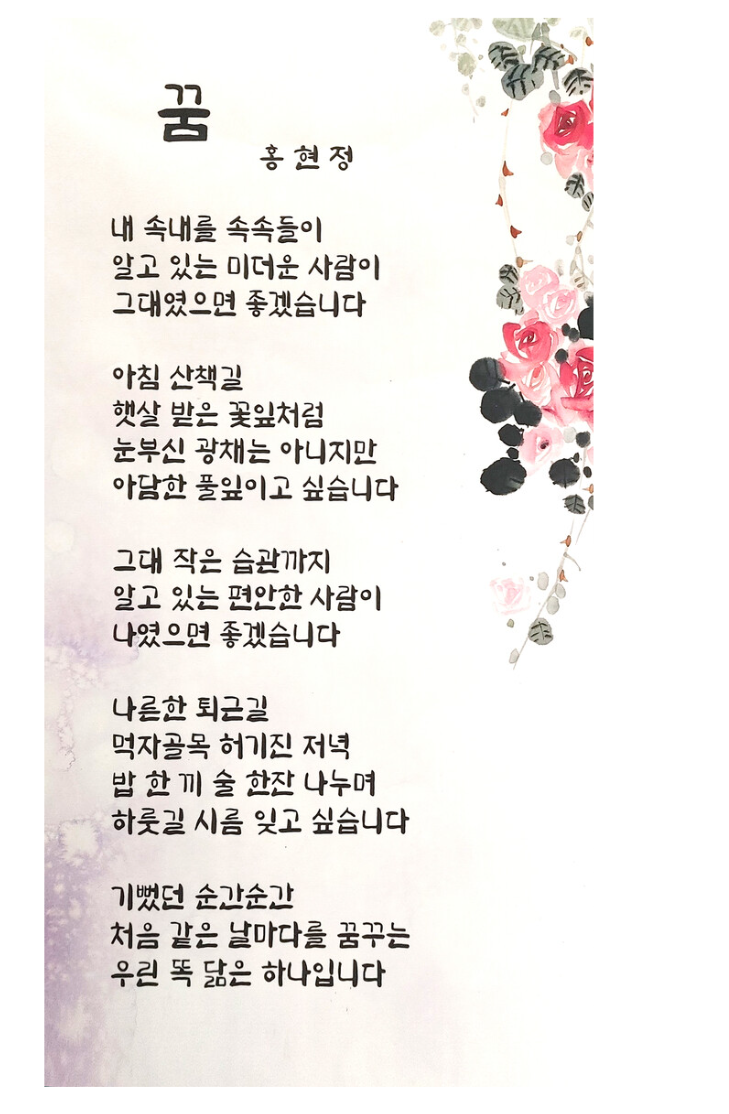 꿈
홍현정
내 속내를 속속들이
알고 있는 미더운 사람이
그대였으면 좋겠습니다
아침 산책길
햇살 받은 꽃잎처럼
눈부신 광채는 아니지만
아담한 풀잎이고 싶습니다
그대 작은 습관까지
알고 있는 편안한 사람이
나였으면 좋겠습니다
나른한 퇴근길
먹자골목 허기진 저녁
밥 한 끼 술 한잔 나누며
하룻길 시름 잊고 싶습니다
기뻤던 순간순간
처음 같은 날마다를 꿈꾸는
우린 똑 닮은 하나입니다